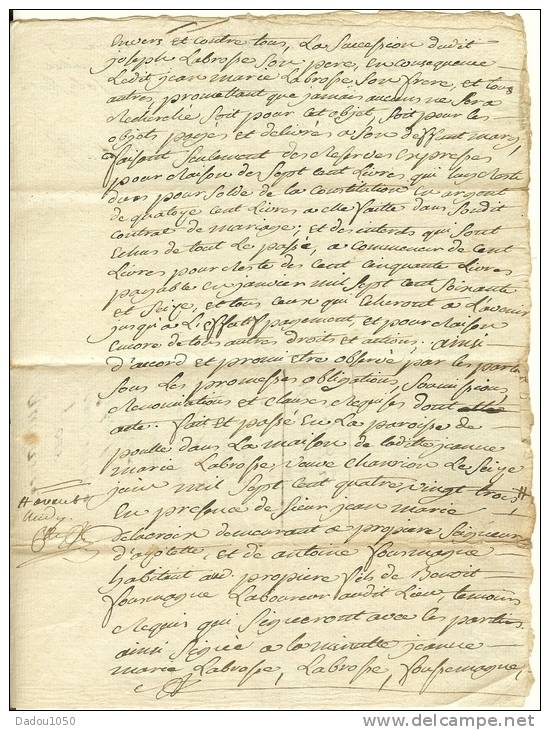 Envers et contre tous, La succession dudit
joseph Labrosse son pere, en consequence
Ledit jean marie Labrosse son frere, et tous
autres, promettant que jamais aucun ne sera
Recherché soit pour cet objet, soit pour les
objets payés et delivrés a son deffunt mary
faisant seulement des Reserves Expresses
pour Raison de sept cent Livres qui luy reste
dues pour solde de la Constitution en argent
de quatoze cent Livres a elle faitte dans sondit
contrat de mariage; et des interets qui sont
Echus de tout le passé, a commencer de cent
Livres pour Reste des cent cinquante Livres
payable en janvier mil sept cent soixante
et seize, et tous ceux qui Echeront a L'avenir
jusqu'a L'effectif payement, et pour Raison
encore de tous autres droits et actions. ainsi
d'accord et promi etre observé par les parties
sous les promesses obligations, soumissions
Renonciations et clauses Requises dont
acte. fait et passé en La paroisse de
poulle dans La maison de laditte jeanne
marie Labrosse, veuve Le seize
juin mil sept cent quatre vingt trois #
En presence de sieur jean marie
delacroix demeurant a propiere seigneur
d'azolette, et de antoine
habitant aud. propiere fils de Benoit
Laboureur audit Lieu, temoins
Requis qui signeront avec les parties
ainsi signée a la minutte jeanne
marie Labrosse, Labrosse,
#
Dadou1050
delcampe.net